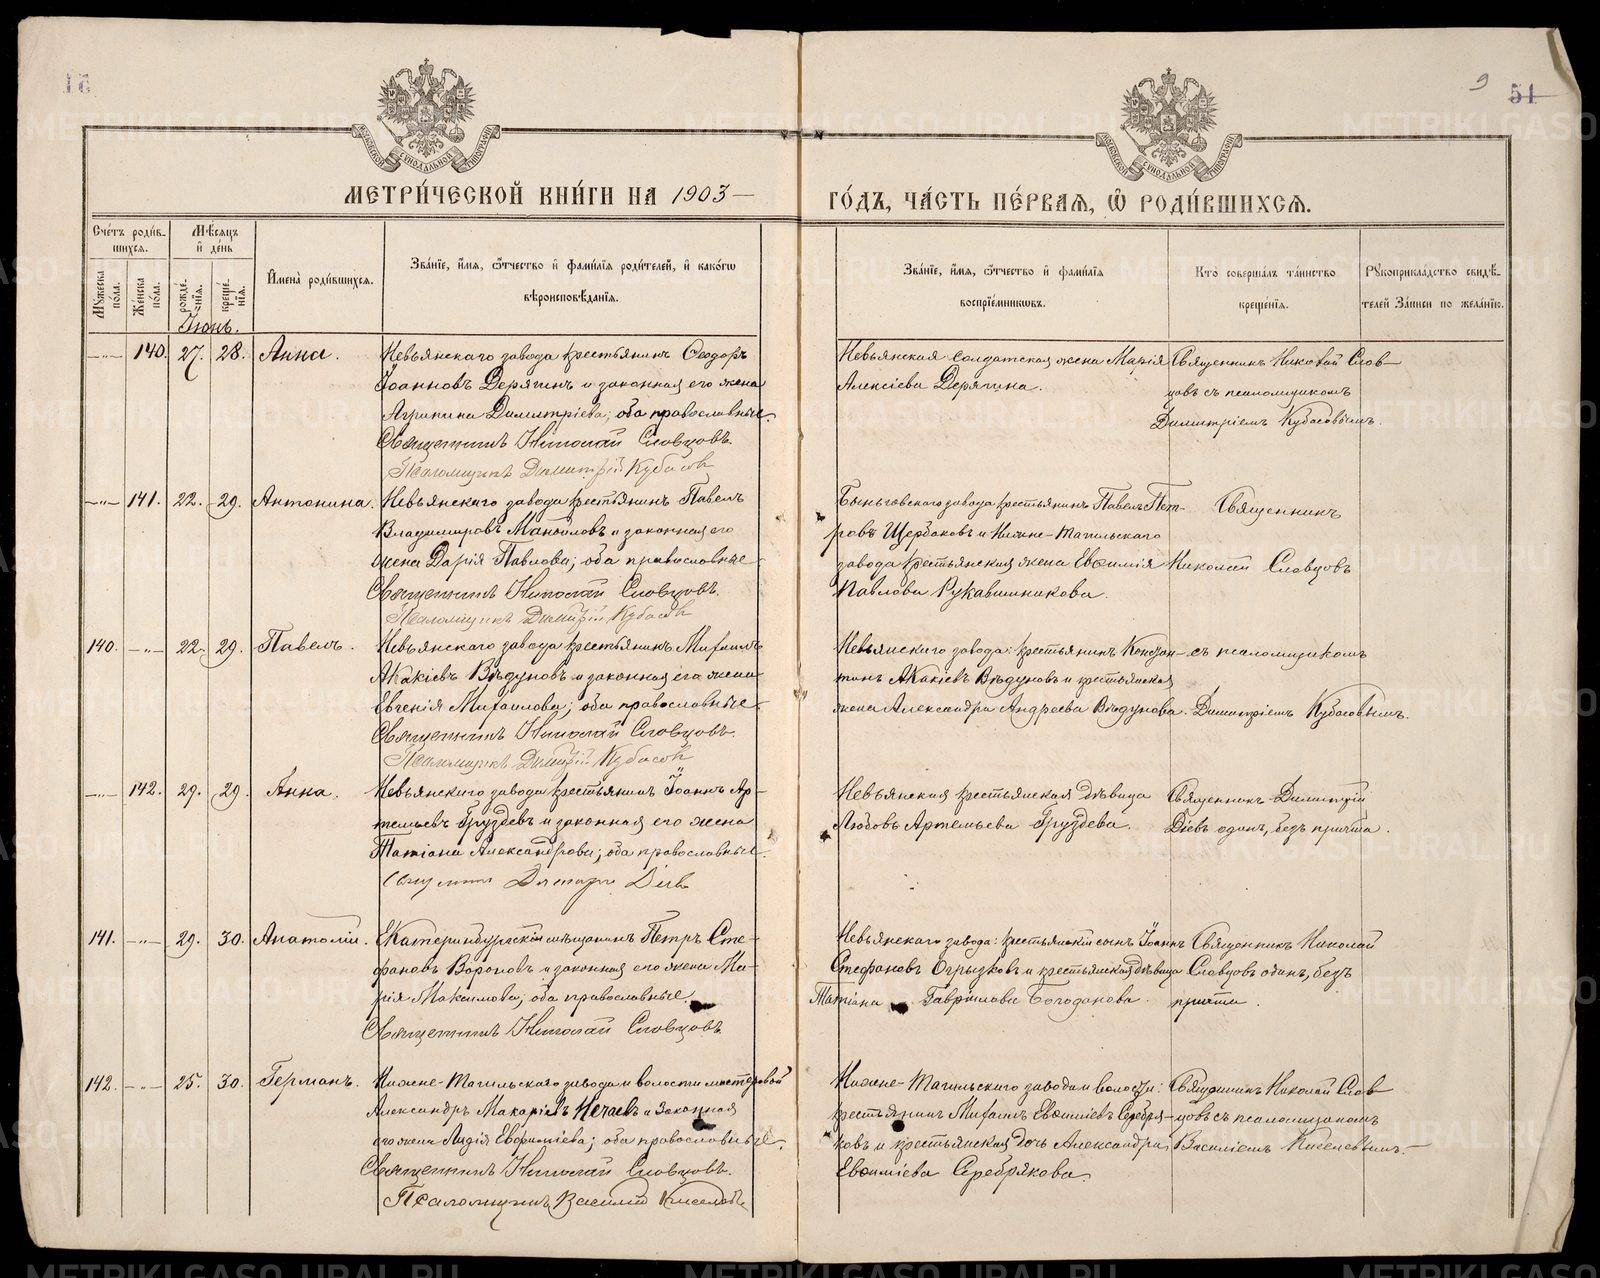 51
МЕТРИ́ЧЕСКОЙ КНИ́ГИ НА 1903 —
ГО́ДЪ, ЧА́СТЬ ПЕ́РВАЯ, Ѽ РОДИ́ВШИХСЯ.
Сче́тъ роди́в-
шихся.
Мѣ́сяцъ
и҆ де́нь
Му́жеска
по́ла.
Же́нска
по́ла.
рожде́-
нїя.
креще́-
нїя.
И҆мена̀ роди́вшихся.
Зва́нїе, и҆́мя, ѻ҆́тчество и҆ фами́лїя роди́телей, и҆ како́гѡ
вѣроисповѣ́данїя.
Зва́нїе, и҆́мя, ѻ҆́тчество и҆ фами́лїя
воспрїе́мниковъ.
Кто̀ соверша́лъ та́инство
креще́нїя.
Рꙋкоприкла́дство свидѣ́-
телей За́писи по жела́нїю.
Іюнь.
—"— 140. 27. 28. Анна. Невьянскаго завода крестьянинъ Ѳеодоръ
Іоанновъ Дерягинъ и законная его жена
Агрипина Димитріева; оба православные.
Священникъ Николай Словцовъ.
Псаломщикъ Димитрій Кубасовъ
Невьянская солдатская жена Марія
Алексіева Дерягина.
Священникъ Николай Слов-
цовъ съ псаломщикомъ
Димитріемъ Кубасовымъ.
—"— 141. 22. 29. Антонина. Невьянскаго завода крестьянинъ Павелъ
Владиміровъ Маноиловъ и законная его
жена Дарія Павлова; оба православные
Священникъ Николай Словцовъ.
Псаломщикъ Димитрій Кубасовъ
Быньговскаго завода крестьянинъ Павелъ Пет-
ровъ Щербаковъ и Нижне-Тагильскаго
завода крестьянская жена Евѳимія
Павлова Рукавишникова.
Священникъ
Николай Словцовъ
140. —"— 22. 29. Павелъ. Невьянскаго завода крестьянинъ Михаилъ
Акакіевъ Вѣдуновъ и законная его жена
Евгенія Михаилова; оба православные
Священникъ Николай Словцовъ.
Псаломщикъ Димитрій Кубасовъ
Невьянскаго завода: крестьянинъ Констан-
тинъ Акакіевъ Вѣдуновъ и крестьянская
жена Александра Андреева Вѣдунова.
съ псаломщикомъ
Димитріемъ Кубасовымъ.
—"— 142. 29. 29. Анна. Невьянскаго завода крестьянинъ Іоаннъ Ар-
темьевъ Груздевъ и законная его жена
Татіана Александрова; оба православные.
Священникъ Димитрій Діевъ
Невьянская крестьянская дѣвица
Любовь Артемьева Груздева.
Священникъ Димитрій
Діевъ одинъ, безъ причта.
141. —"— 29. 30. Анатолій. Екатеринбургскій мѣщанинъ Петръ Сте-
фановъ Вороновъ и законная его жена Ма-
рія Максимова; оба православные.
Священникъ Николай Словцовъ
Невьянскаго завода: крестьянскій сынъ Іоаннъ
Стефановъ Огрызковъ и крестьянская дѣвица
Татіана Гавріилова Богоданова.
Священникъ Николай
Словцовъ одинъ, безъ
причта.
142. —"— 25. 30. Германъ. Нижне-Тагильскаго завода и волости мастеровой
Александръ Макаріевъ Нечаевъ и законная
его жена Лидія Евфиміева; оба православные.
Священникъ Николай Словцовъ.
Псаломщикъ Василій Киселевъ
Нижне-Тагильскаго завода и волости:
крестьянинъ Михаилъ Евѳиміевъ Серебря-
ковъ и крестьянская дочь Александра
Евѳиміева Серебрякова.
Священникъ Николай Слов
цовъ съ псаломщикомъ
Василіемъ Киселевымъ.